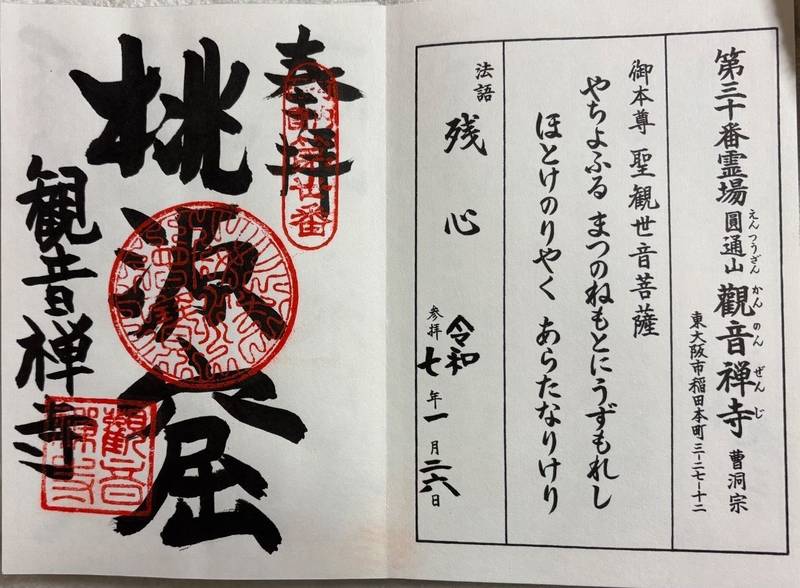 第三十番霊場 圓通山 觀音禅寺 曹洞宗
えんつうざん かんのん ぜんじ
東大阪市稲田本町三-二七-十二
御本尊 聖観世音菩薩
やちよふる まつのねもとにうずもれし
ほとけのりやく あらたなりけり
法語 残心
参拝 令和七年一月二六日
奉拝
桃 窟
観音禅寺
觀音禪寺